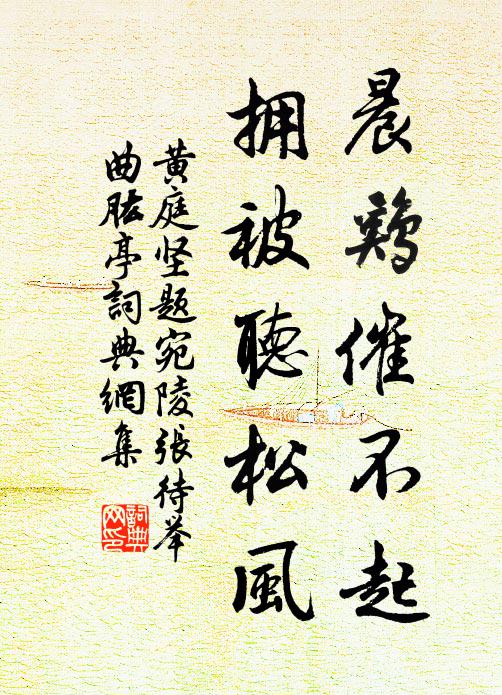 晨鷄催不起
拥被聽松風
黄庭坚题宛陵張待举
曲肱亭詞典網集
詞典网印